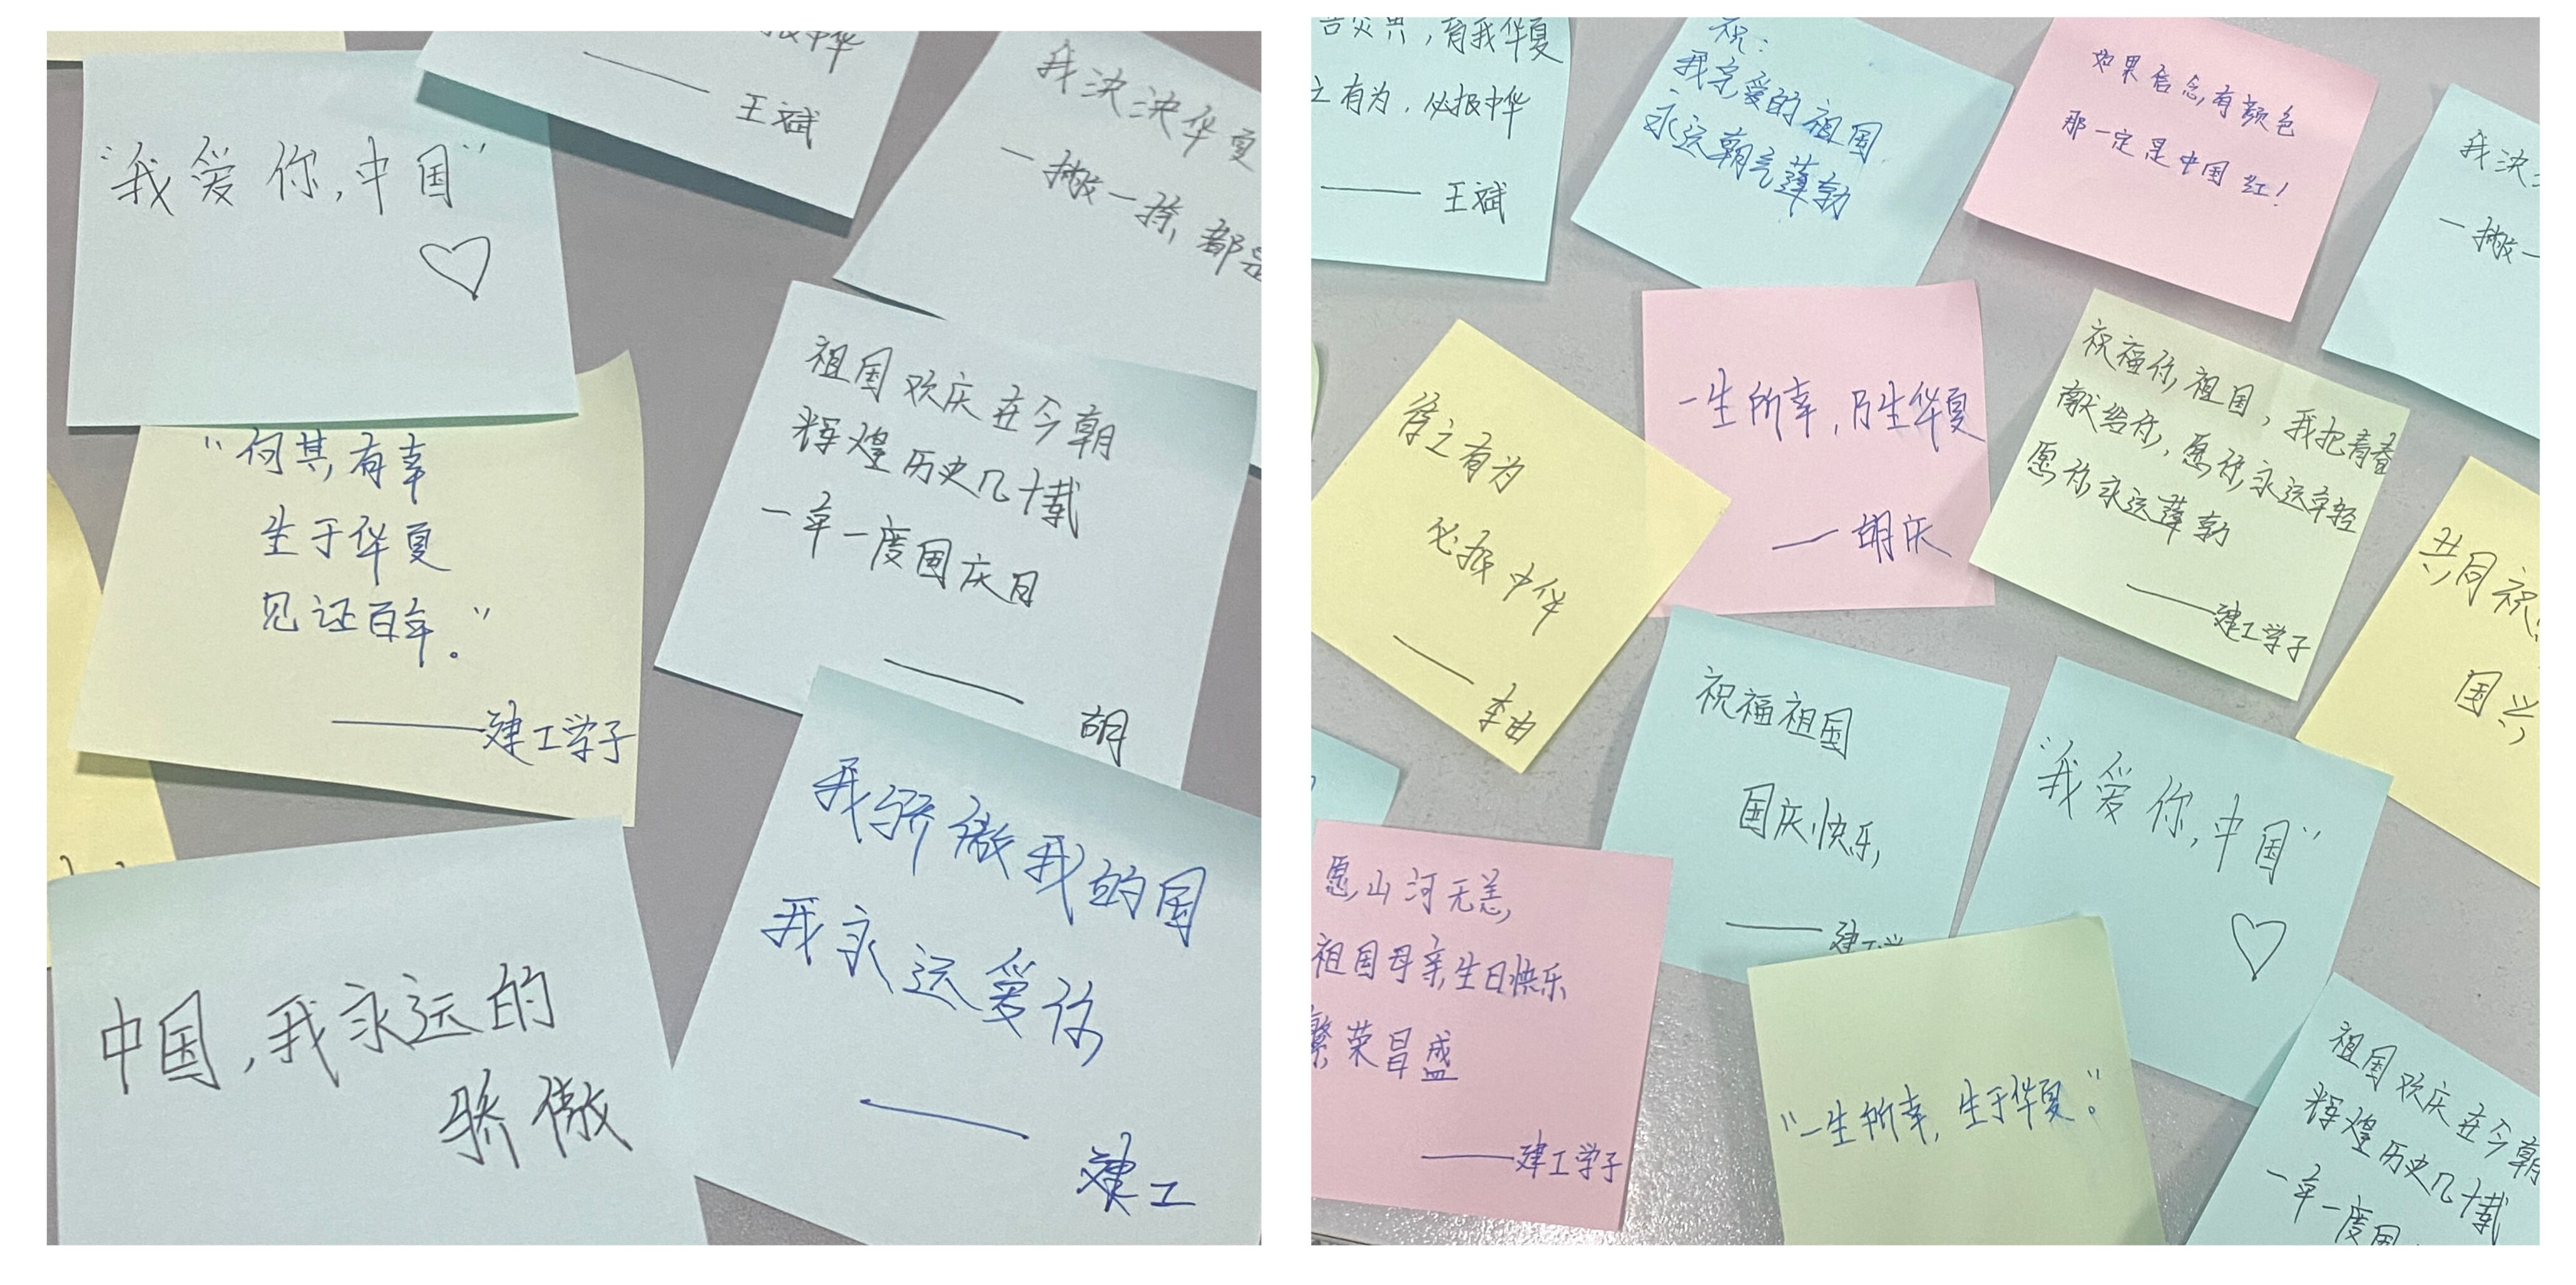 "我爱你,中国"
报中华
——王斌
我泱泱华夏
一撇一捺,都是
"何其有幸
生于华夏
见证百年。"
——建工学子
祖国欢庆在今朝
辉煌历史几十载
一年一度国庆日
——胡
中国,我永远的
骄傲
我骄傲我的国
我永远爱你
——建工
,育我华夏
之有为,必报中华
——王斌
祝:
我亲爱的祖国
永远朝气蓬勃
如果信念有颜色
那一定是中国红!
我泱
一撇一
倚之有为
必报中华
——李由
一生所幸,乃生华夏
—胡庆
祝福你,祖国,我把青春
献给你,愿你永远年轻
愿你永远蓬勃
——建工学子
共同祝
国兴
祝福祖国
国庆快乐
——建工学
"我爱你,中国"
愿山河无恙
祖国母亲生日快乐
繁荣昌盛
——建工学子
"一生所幸,生于华夏。"
祖国欢庆在今朝
辉煌历史几十载
一年一度国